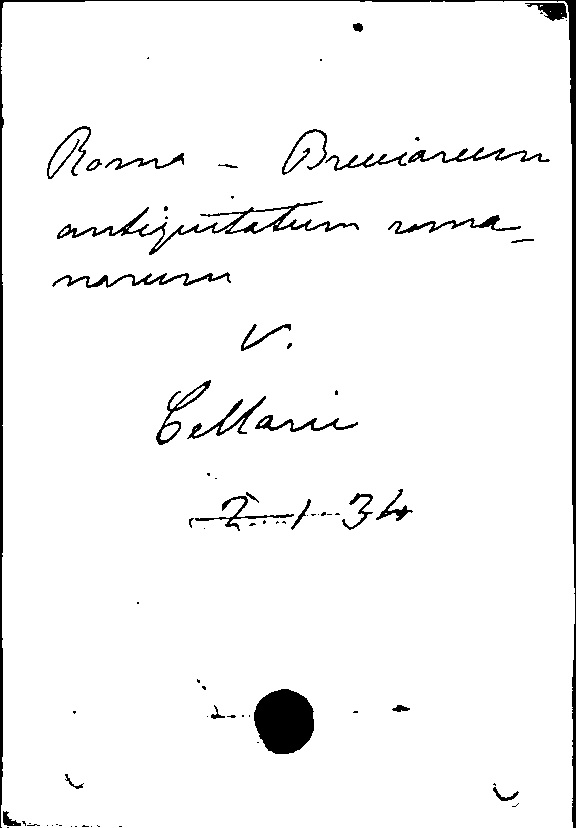 Roma - Breviarium
antiquitatum roma-
narum
V.
Cellarii
2-1-34